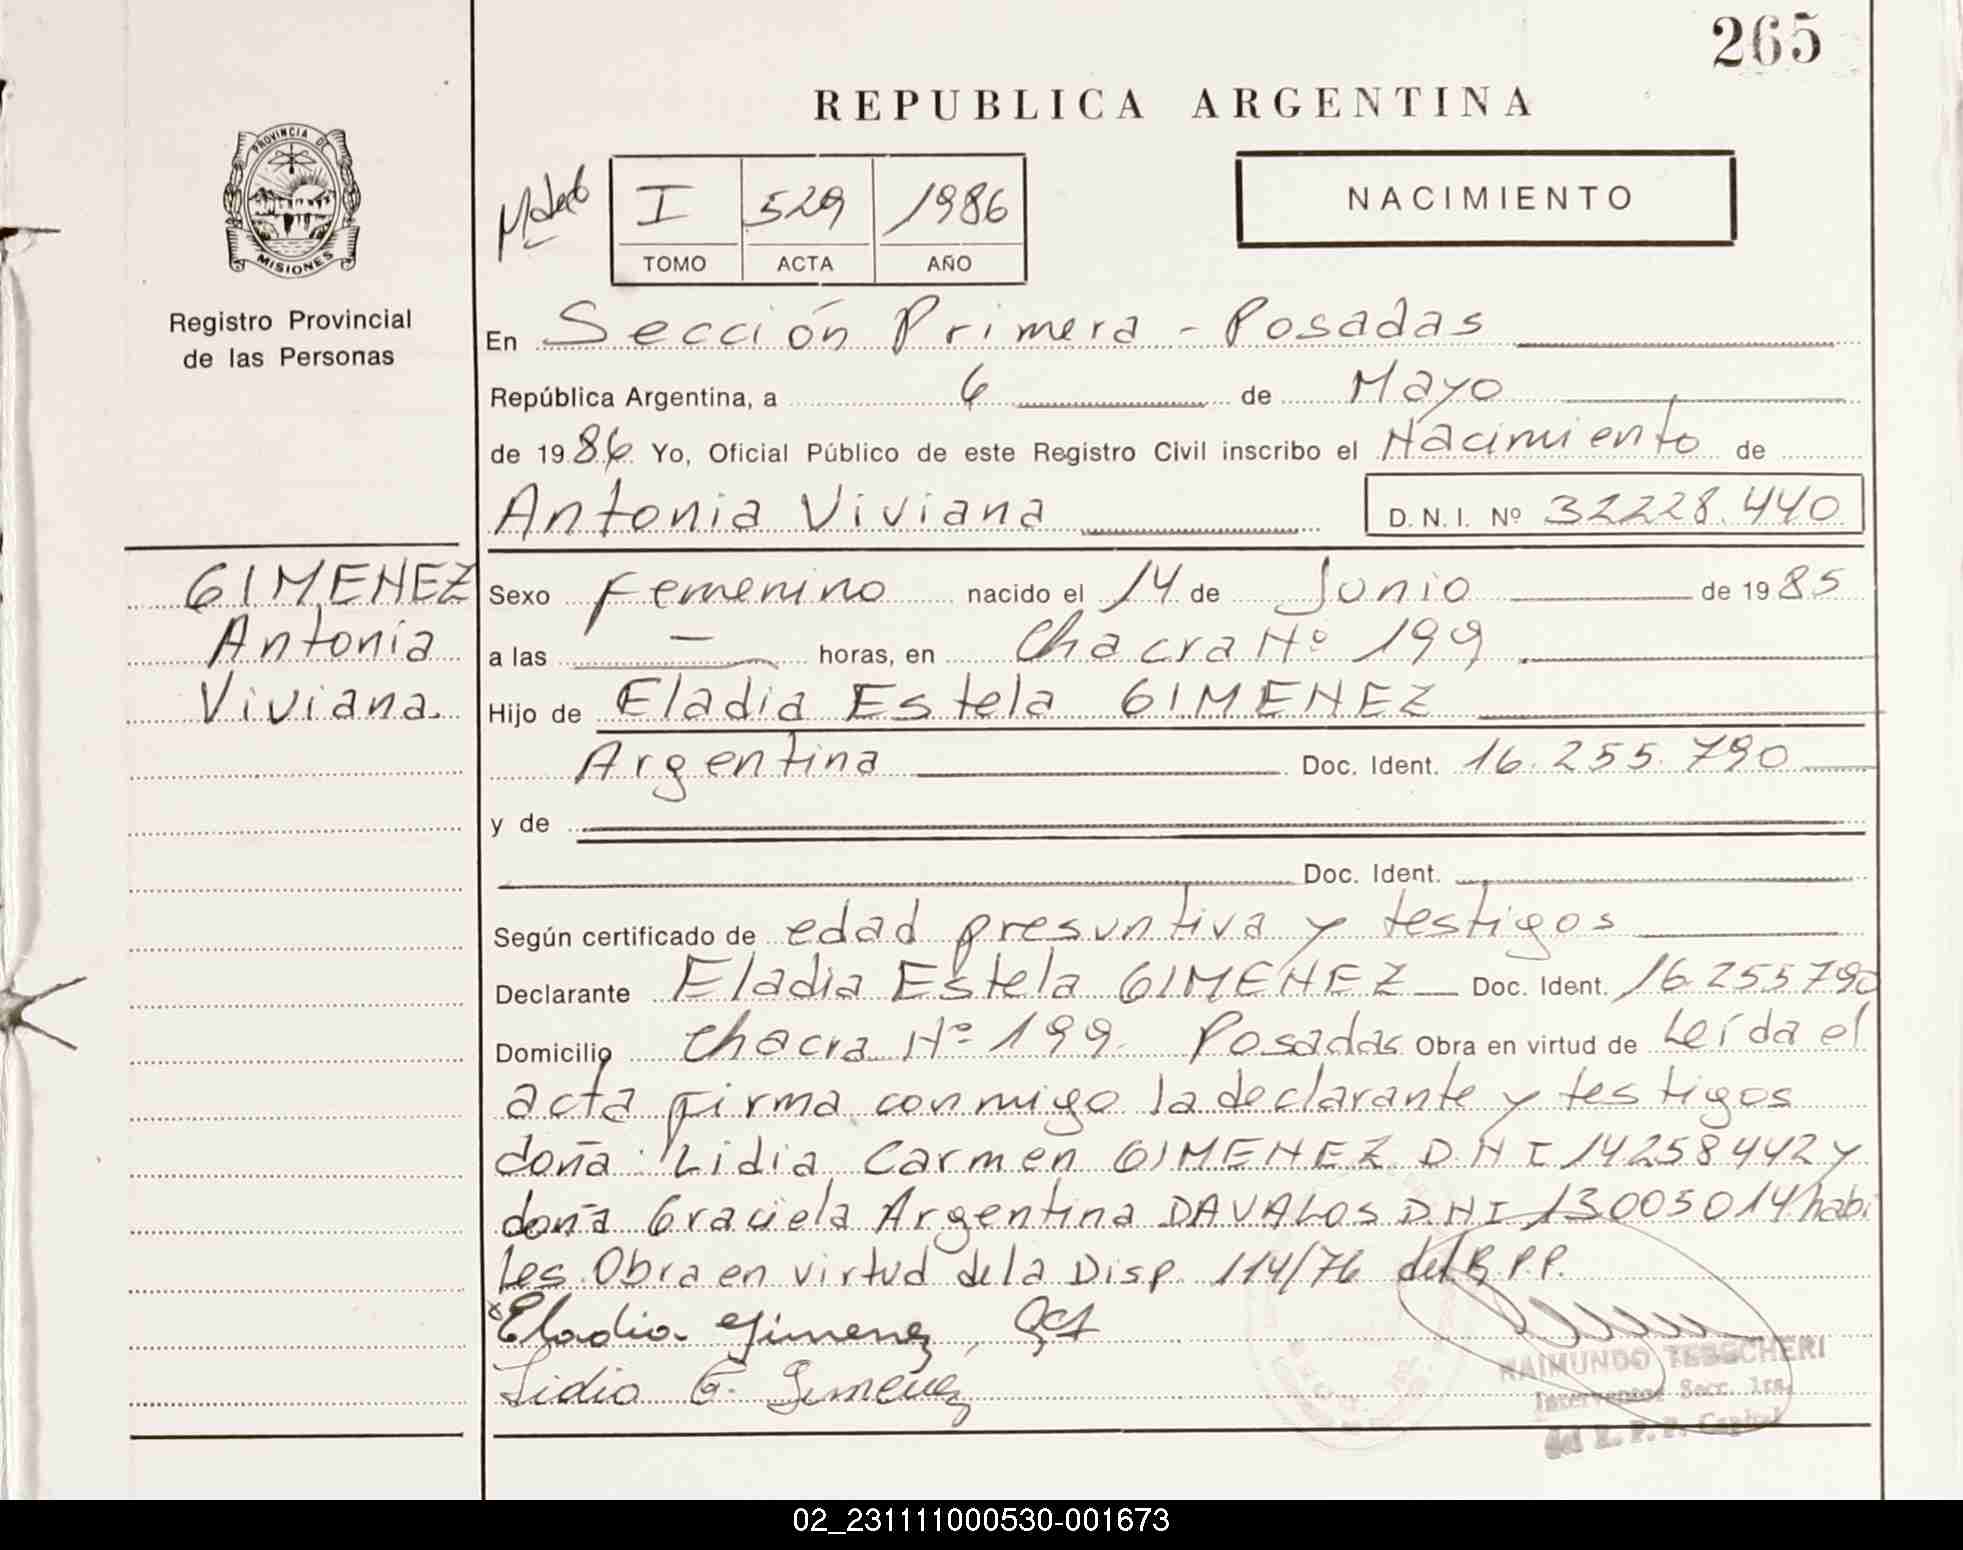 265
REPUBLICA ARGENTINA
PROVINCIA DE
MISIONES
I 529 1986
TOMO ACTA AÑO
NACIMIENTO
Registro Provincial
de las Personas
En Sección Primera - Posadas
República Argentina, a 6 de Mayo
de 1986 Yo, Oficial Público de este Registro Civil inscribo el Nacimiento de
Antonia Viviana D.N.I. Nº 32228.440
GIMENEZ
Antonia
Viviana.
Sexo Femenino nacido el 14 de Junio de 1985
a las — horas, en Chacra Nº 199
Hijo de Eladia Estela GIMENEZ
Argentina Doc. Ident. 16.255.790
y de
Doc. Ident.
Según certificado de edad presuntiva y testigos
Declarante Eladia Estela GIMENEZ Doc. Ident. 16.255790
Domicilio Chacra Nº 199 Posadas Obra en virtud de Leída el
acta firma conmigo la declarante y testigos
doña Lidia Carmen GIMENEZ DNI 14258442 y
doña Graciela Argentina DAVALOS DNI 13005014 habi
les. Obra en virtud de la Disp. 114/76 del R.P.P.
x Eladia Gimenez,
Lidia G. Gimenez
RAIMUNDO TEBECHERI
Interventor Secc. 1ra.
del R. P. P. Capital
02_231111000530-001673